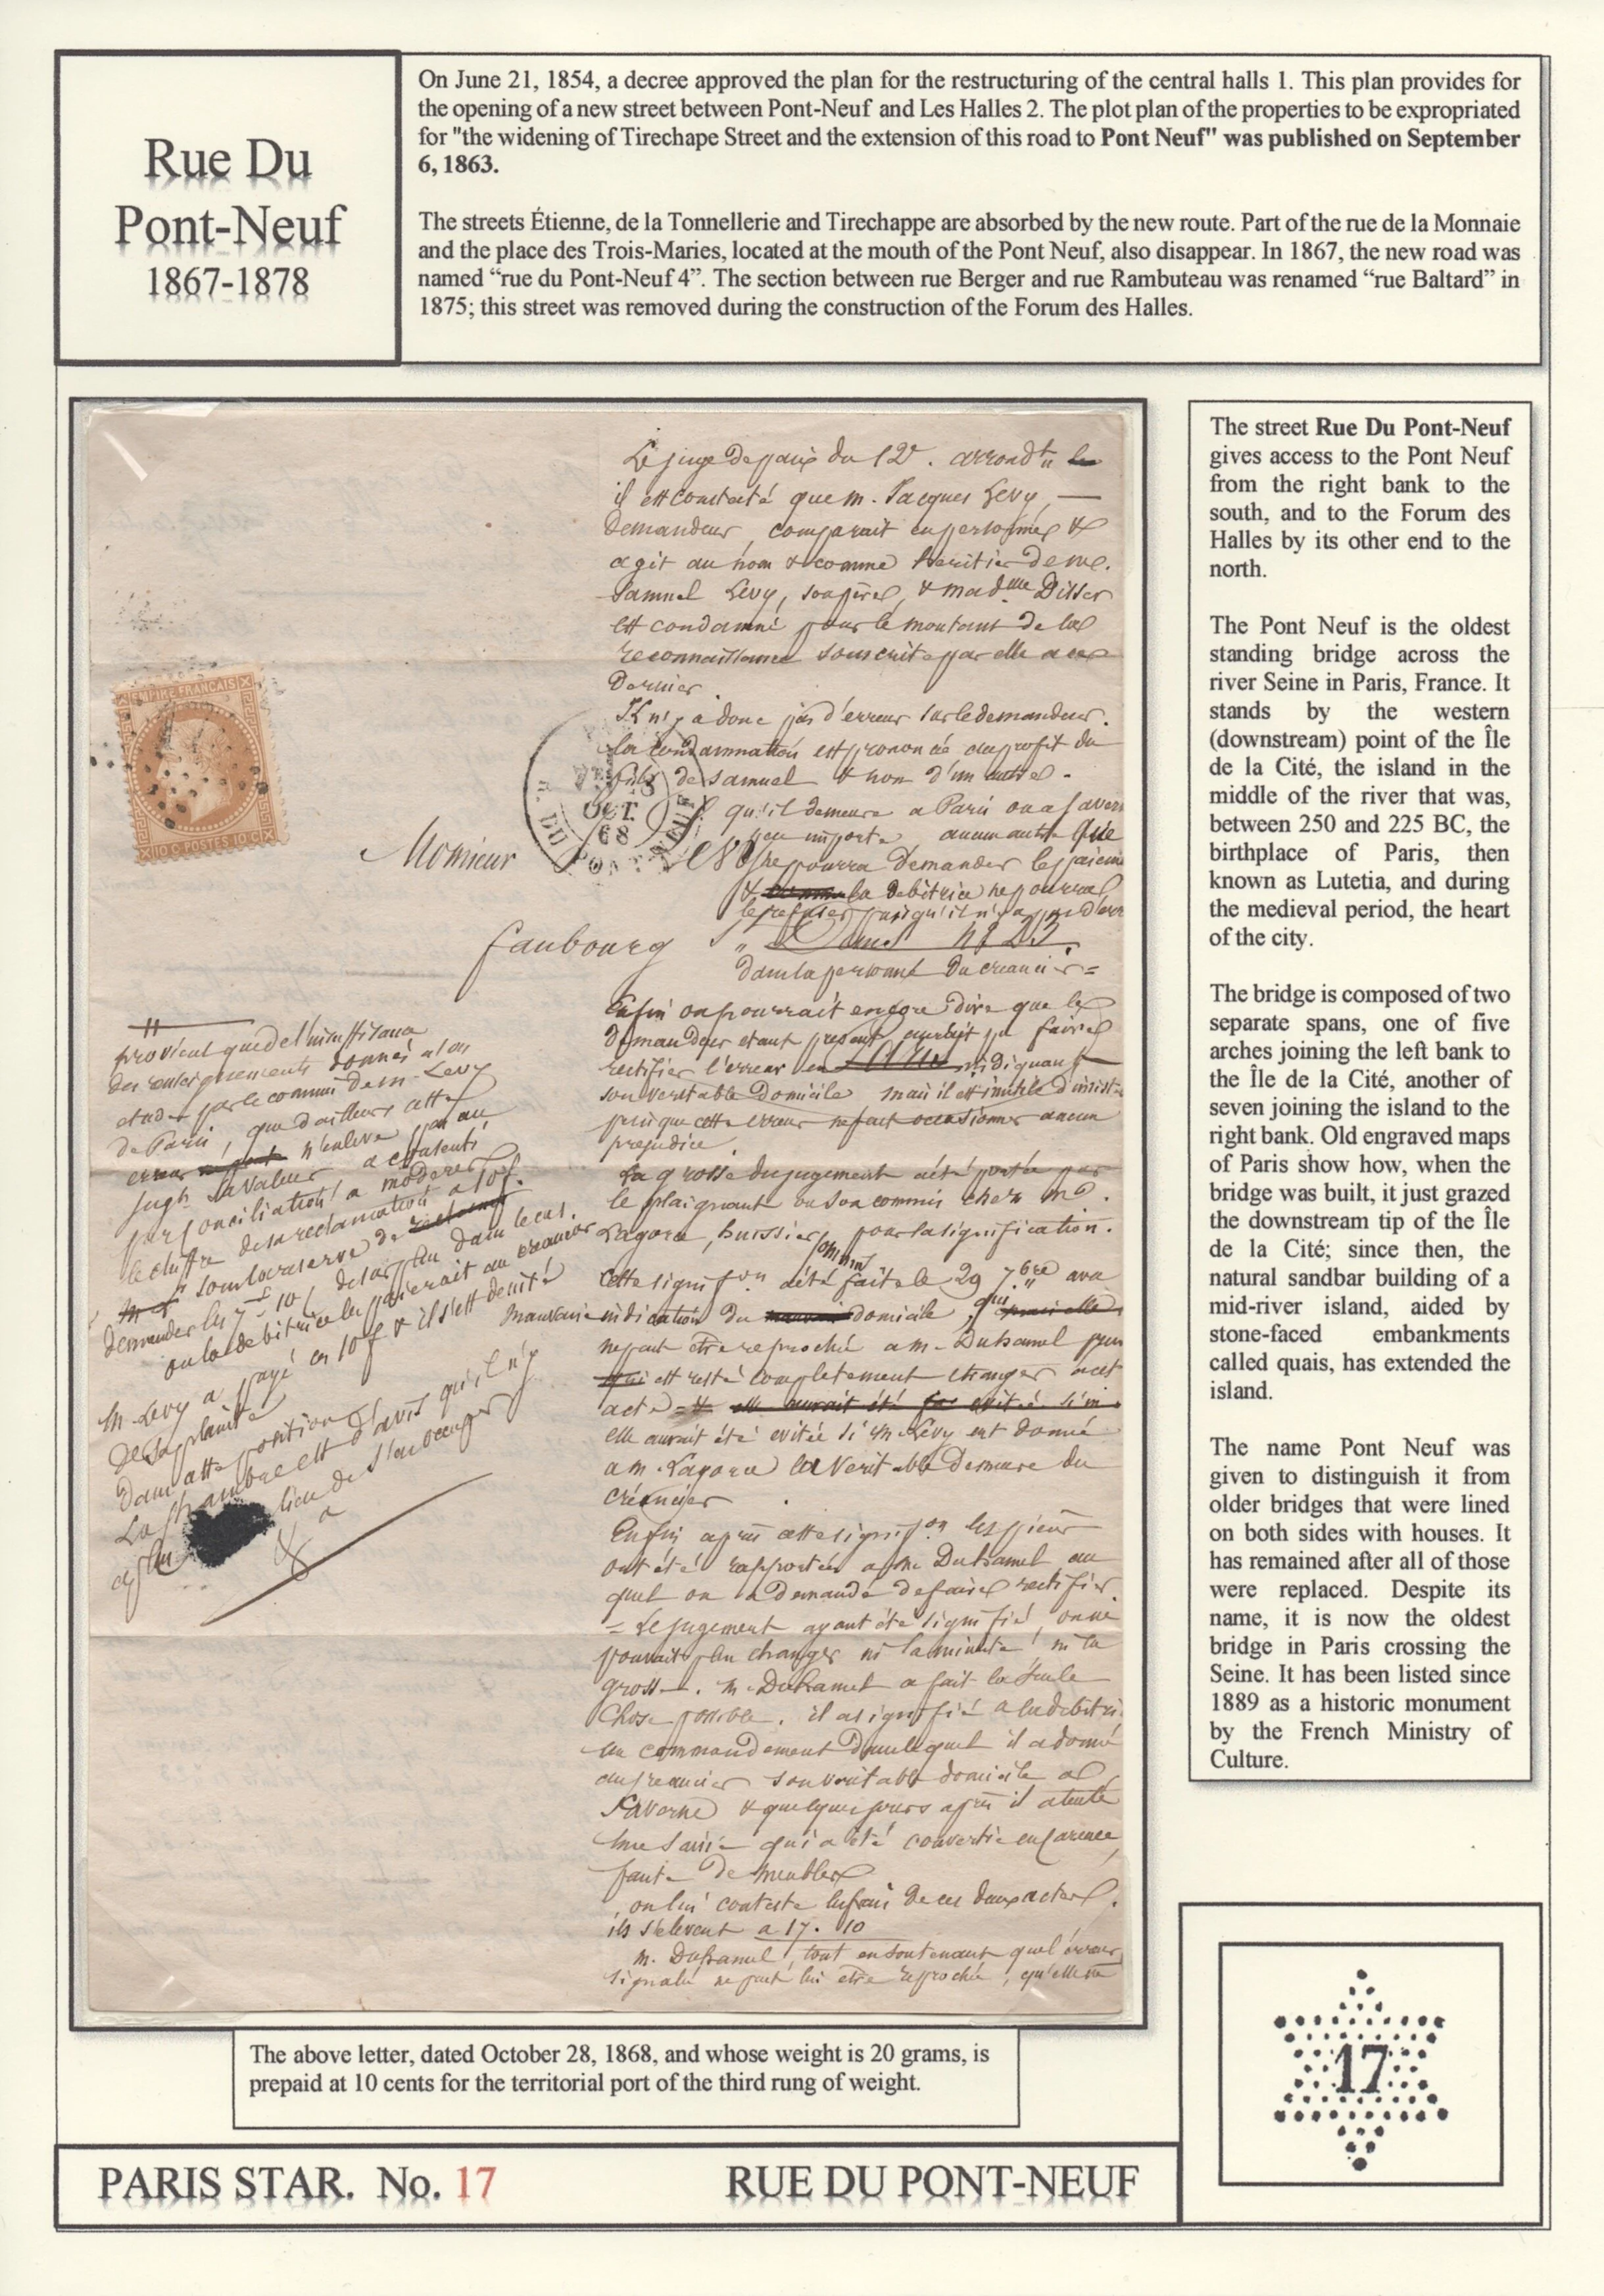 Rue Du
Pont-Neuf
1867-1878
On June 21, 1854, a decree approved the plan for the restructuring of the central halls 1. This plan provides for
the opening of a new street between Pont-Neuf and Les Halles 2. The plot plan of the properties to be expropriated
for "the widening of Tirechape Street and the extension of this road to Pont Neuf" was published on September
6, 1863.
The streets Étienne, de la Tonnellerie and Tirechappe are absorbed by the new route. Part of the rue de la Monnaie
and the place des Trois-Maries, located at the mouth of the Pont Neuf, also disappear. In 1867, the new road was
named “rue du Pont-Neuf 4”. The section between rue Berger and rue Rambuteau was renamed “rue Baltard” in
1875; this street was removed during the construction of the Forum des Halles.
Le juge de paix du 12e. arrondt
il est constaté que m. Jacques Levy,
demandeur, comparait en personne &
agit au nom & comme heritier de me.
Samuel Levy, son père, & madlle Disser
est condamné pour le montant de la
reconnaissance souscrite par elle a ce
dernier.
Il n'y a donc pas d'erreur sur le demandeur.
la condamnation est prononcée au profit du
fils de Samuel & non d'un autre.
qu'il demeure a Paris ou a Saverne
peu importe aucun autre que
ne pourra demander le paiem
& la debitrice ne pourra
le refuser puisqu'il n'y a pas d'erre
dans la personne du creancier =
EMPIRE FRANCAIS
10 C. POSTES 10 C.
OCT.
68
Monsieur
faubourg St Denis No 23.
Enfin on pourrait encore dire que le
demandeur etant present aurait pu faire
rectifier l'erreur en indiquant
son veritable domicile mais il est inutile d'insist
puisque cette erreur ne peut occasionner aucun
prejudice.
La grosse du jugement a été portée par
le plaignant ou son commis chez md.
Lagorce, huissier, pour la signification.
Cette signifon a été faite le 29 7bre
mauvaise indication du domicile, qui
ne peut être reproché a m. Duhamel
qui est resté completement etranger a cet
acte = & elle aurait été
elle aurait été evitée si m. Levy eut donné
a m. Lagorce la veritable demeure du
créancier.
Enfin après cette signifon les pieces
ont été rapportées a me Duhamel au
quel on a demandé de faire rectifier
= Le jugement ayant été signifié, on ne
pouvait plus changer ni la minute ni la
grosse. m. Duhamel a fait la seule
chose possible. il a signifié a la debitri
un commandement dans lequel il a donné
au creancier son veritable domicile a
Saverne & quelques jours après il a tenté
une saisie qui a été convertie en carence,
faute de meubles
on lui conteste les frais de ces deux actes.
ils s'elevent a 17. 10
m. Duhamel, tout en soutenant que l'erreur
signalée ne peut lui etre reprochée, qu'elle ne
provient que de l'insuffisance
des renseignements donnés a son
etude par le commis de m. Levy
de Paris, que d'ailleurs cette
erreur n'enleve pas au
jugt. sa valeur a consenti
par conciliation a moderer
le chiffre de sa reclamation a 10 f.
sous la reserve de
demander les 7 f 10 dans le cas
ou la debitrice les paierait au creancier
M. Levy a payé ces 10 f & il s'est desisté
de sa plainte
dans cette position
La Chambre est d'avis qu'il n'y
a plus lieu de s'en occuper
The street Rue Du Pont-Neuf
gives access to the Pont Neuf
from the right bank to the
south, and to the Forum des
Halles by its other end to the
north.
The Pont Neuf is the oldest
standing bridge across the
river Seine in Paris, France. It
stands by the western
(downstream) point of the Île
de la Cité, the island in the
middle of the river that was,
between 250 and 225 BC, the
birthplace of Paris, then
known as Lutetia, and during
the medieval period, the heart
of the city.
The bridge is composed of two
separate spans, one of five
arches joining the left bank to
the Île de la Cité, another of
seven joining the island to the
right bank. Old engraved maps
of Paris show how, when the
bridge was built, it just grazed
the downstream tip of the Île
de la Cité; since then, the
natural sandbar building of a
mid-river island, aided by
stone-faced embankments
called quais, has extended the
island.
The name Pont Neuf was
given to distinguish it from
older bridges that were lined
on both sides with houses. It
has remained after all of those
were replaced. Despite its
name, it is now the oldest
bridge in Paris crossing the
Seine. It has been listed since
1889 as a historic monument
by the French Ministry of
Culture.
The above letter, dated October 28, 1868, and whose weight is 20 grams, is
prepaid at 10 cents for the territorial port of the third rung of weight.
17
PARIS STAR. No. 17
RUE DU PONT-NEUF